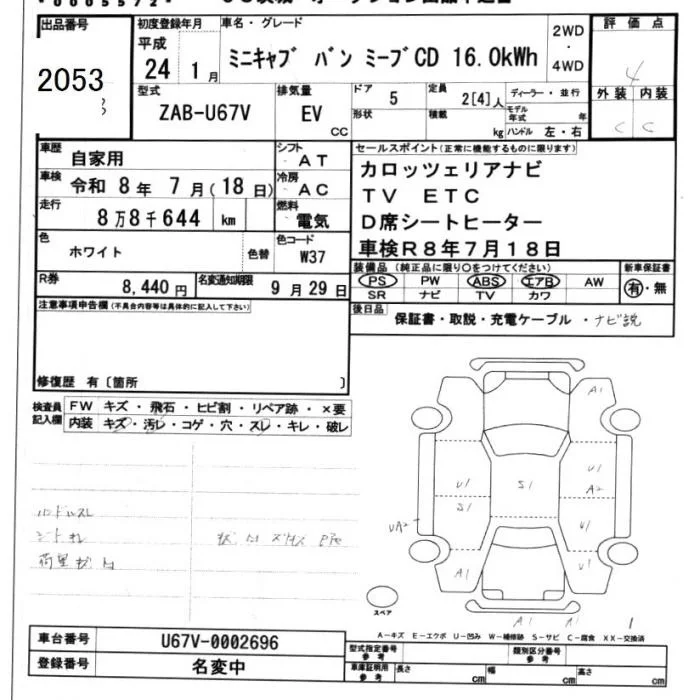 出品番号
2053
初度登録年月
平成
24 1月
車名・グレード
ミニキャブ バン ミーブCD 16.0kWh
2WD
・
4WD
評価点
4
外装 内装
C C
型式
ZAB-U67V
排気量
EV
CC
ドア
5
形状
定員
2[4]人
積載
kg
ディーラー・並行
モデル年式 年
ハンドル 左・右
車歴
自家用
シフト
AT
車検
令和 8年 7月(18日)
冷房
AC
走行
8万8千644 km
燃料
電気
色
ホワイト
色替
色コード
W37
R券
8,440円
名変通知期限
9月29日
セールスポイント(正常に機能するものに限ります)
カロッツェリアナビ
TV ETC
D席シートヒーター
車検R8年7月18日
装備品(純正品に限り○をつけてください)
PS PW ABS エアB AW
SR ナビ TV カワ
新車保証書
有・無
後日品
保証書・取説・充電ケーブル・ナビ説
注意事項申告欄(不具合内容等は具体的に記入して下さい)
修復歴 有〔箇所 〕
検査員
記入欄
FW キズ・飛石・ヒビ割・リペア跡・×要
内装 キズ・汚レ・コゲ・穴・スレ・キレ・破レ
A1
U1
S1
S1
U1
A2
U1
UA2
A1
U1
スペア
A1 A1 1
A-キズ E-エクボ U-凹み W-補修跡 S-サビ C-腐食 XX-交換済
車台番号
U67V-0002696
登録番号
名変中
型式指定番号
参考
類別区分番号
参考
車庫証明用
参考
長さ cm 幅 cm 高さ cm